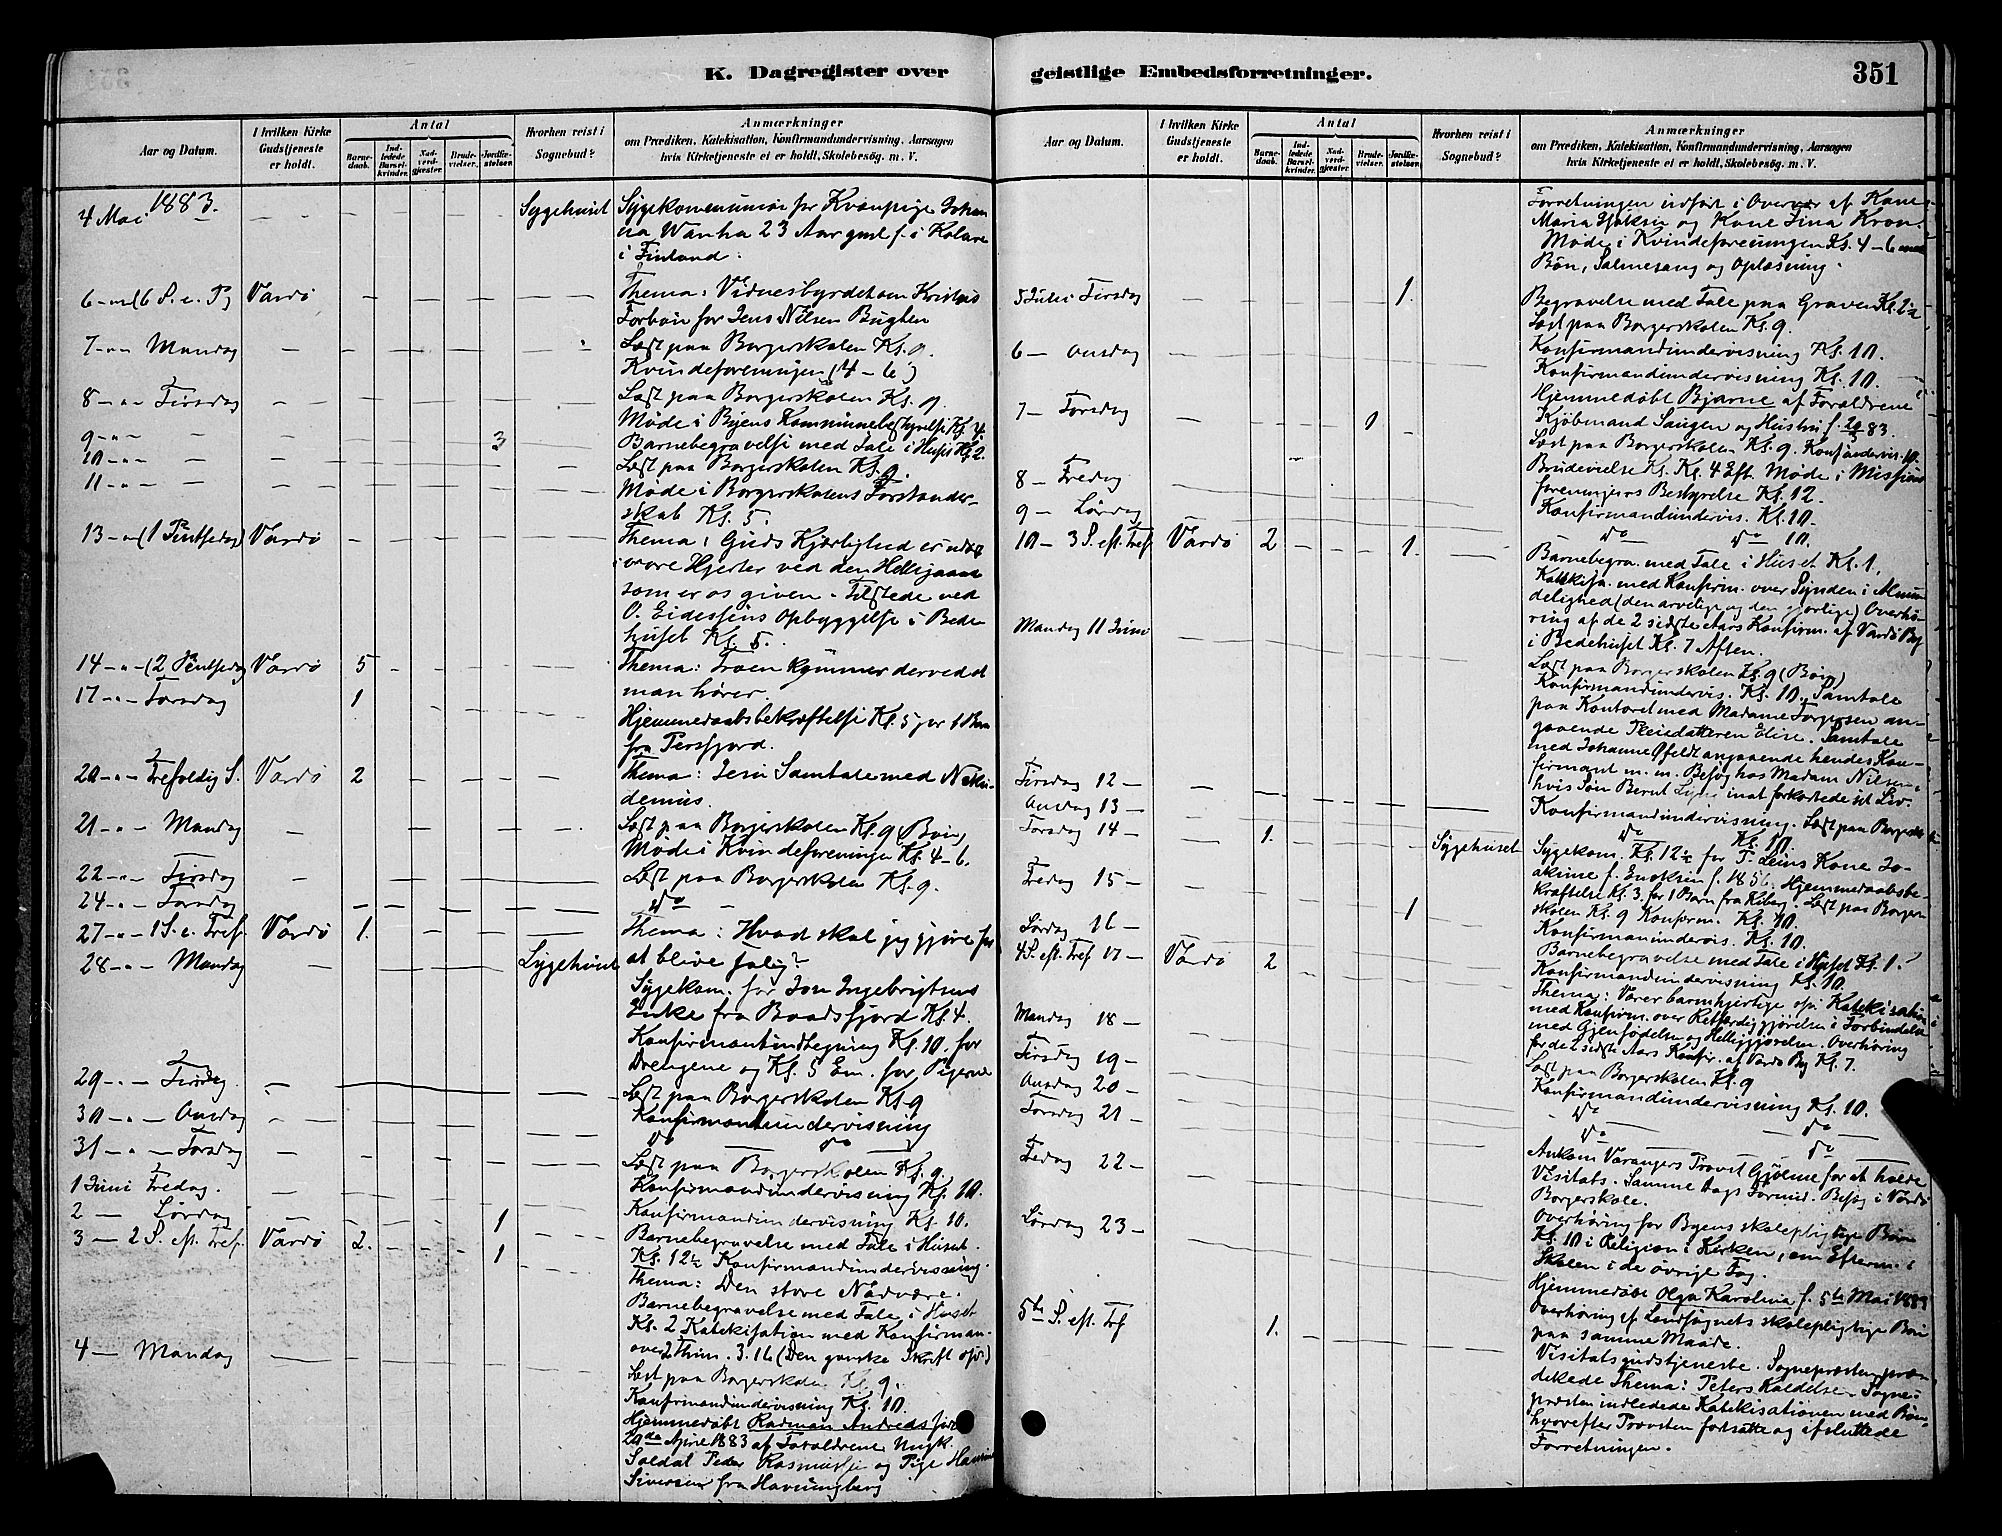 K. Dagregister over
Aar og Datum.
I hvilken Kirke Gudstjeneste er holdt.
Antal
Barne-daab.
Ind-ledede Barsel-kvinder.
Nad-verd-gjæster.
Brude-vielser.
Jordfæ-stelser.
Hvorhen reist i Sognebud?
Anmærkninger
om Prædiken, Katekisation, Konfirmandundervisning, Aarsagen
hvis Kirketjeneste ei er holdt, Skolebesøg. m. V.
1883.
4 Mai - - - - - - Sygehuset Sygekommunion for Kvænpige Johan
na Wanha 23 Aar gml f. i Kolare
i Finland.
6 - (6 S. e. P) Vardø - - - - - Thema: Vidnesbyrdet om Kristus
Forbøn for Jens Nilsen Bugten
7 - " Mandag - - - - - - Læst paa Borgerskolen Kl. 9.
Kvindeforeningen (4-6)
8 - " Tirsdag - - - - - - Læst paa Borgerskolen Kl. 9.
Møde i Byens Kommunebestyrelse Kl. 4
9 - " - - - - - - 3 Barnebegravelse med Tale i Huset Kl. 2.
10 - " - - - Læst paa Borgerskolen Kl. 9.
11 - " - - - Møde i Borgerskolens Forstander-
skab Kl. 5.
13 - " (1 Pintsedag) Vardø - - - - - Thema: Guds Kjærlighed er udøst
i vore Hjerter ved den Helligaand
som er os given - Tilstede ved
O. Eidessens Opbyggelse i Bede
huset Kl. 5.
14 - " - (2 Pintsedag) Vardø 5 - - - - Thema: Troen kommer derved at
man hører.
17 - " - Torsdag 1 - - - -
Hjemmedaabsbekræftelse Kl. 5 for 1 Barn
fra Persfjord.
20 - " - Trefoldig S. Vardø 2 - - - - Thema: Jesu Samtale med Niko-
demus.
21 - " - Mandag - - - - - Læst paa Borgerskolen Kl. 9 (Bøn)
Møde i Kvindeforeningen Kl. 4-6.
22 - " - Tirsdag - - - - - Læst paa Borgerskolen Kl. 9.
24 - " - Torsdag - - - - - do -
27 - " - 1 S. e. Tref. Vardø 1. - - - - Thema: Hvad skal jeg gjøre for
at blive salig?
28 - " - Mandag - - - - - Sygehuset
Sygekom. for Jon Ingebrigtsens
Enke fra Baadsfjord Kl. 4.
Konfirmantindtegning Kl. 10 for
Drengene og Kl. 5 Em. for Pigerne
29 - " - Tirsdag - - - - - Læst paa Borgerskolen Kl. 9
30 - " - Onsdag - - - - - Konfirmantundervisning
31 - " - Torsdag - - - - - do - do
Læst paa Borgerskolen Kl. 9.
1 Juni Fredag. - - - - - Konfirmandundervisning Kl. 10.
2 - Lørdag - - - - - 1 Konfirmandundervisning Kl. 10.
Barnebegravelse med Tale i Huset.
3 - 2 S. eft. Tref. Vardø 2. - - - 1 Kl. 12½ Konfirmandundervisning.
Thema: Den store Nadvære.
Barnebegravelse med Tale i Huset
Kl. 2 Katekisation med Konfirman.
over 2 Thim. 3.16 (Den ganske Skrift osv.)
4 - Mandag - - - - -
Læst paa Borgerskolen Kl. 9.
Konfirmandundervisning Kl. 10.
Hjemmedøbt Rasmus Andreas født
20de April 1883 af Forældrene Ungk.
Soldat Peder Rasmussen og Pige
Siversen fra Havningberg
geistlige Embedsforretninger.
351
Aar og Datum.
I hvilken Kirke Gudstjeneste er holdt.
Antal
Barne-daab.
Ind-ledede Barsel-kvinder.
Nad-verd-gjæster.
Brude-vielser.
Jordfæ-stelser.
Hvorhen reist i Sognebud?
Anmærkninger
om Prædiken, Katekisation, Konfirmandundervisning, Aarsagen
hvis Kirketjeneste ei er holdt, Skolebesøg. m. V.
Forretningen udført i Overvær af Kone
Maria og Kone Lina Kron.
Møde i Kvindeforeningen Kl. 4-6 med
Bøn, Salmesang og Oplæsning.
5 Juni Tirsdag - - - - - 1. Begravelse med Tale paa Graven Kl.
Læst paa Borgerskolen Kl. 9.
6 - Onsdag - - - - - Konfirmandundervisning Kl. 10.
Konfirmandundervisning Kl. 10.
Hjemmedøbt Bjarne af Forældrene
7 - Torsdag - - - - 1 - Kjøbmand Saugen og Hustru f. 83.
Læst paa Borgerskolen Kl. 9. Konf. undervis. 10.
8 - Fredag Brudevielse Kl. 4 Eft. Møde i Missions
foreningens Bestyrelse Kl. 12.
9 - Lørdag Konfirmandundervis. Kl. 10.
do do 10.
10 - 3 S. eft. Tref. Vardø 2 - - - 1. - Barnebegra. med Tale i Huset Kl. 1.
Katekisa. med Konfirm. over Synden i Almin
delighed (den arvelige og den gjorlige) Overhø-
ring af de 2 sidste Aars Konfirm. af Vardø By
i Bedehuset Kl. 7 Aften.
Mandag 11 Juni - - - - - Læst paa Borgerskolen Kl. 9 (Bøn)
Konfirmandundervis. Kl. 10. Samtale
paa Kontoret med Madame Torgersen an-
gaaende Pleiedatteren Elise. Samtale
med Johanne Øfeldt angaaende hendes Kon-
firmant m. m. Besøg hos Madam Nilsen,
hvis Søn Bernt inat forkortede sit Liv.
Tirsdag 12 -
Onsdag 13 - Konfirmandundervisning. Læst paa Borgersk
Torsdag 14 - 1. - - - - Sygehuset do Kl. 10.
Sygekom. Kl. 12½ for T. Leins Kone Jo-
akime f. Enoksen f. 1856. Hjemmedaabsbe-
Fredag 15 - kræftelse Kl. 3. for 1 Barn fra Kiberg. Læst paa Borger-
skolen Kl. 9 Konfirm. Kl. 10.
Lørdag 16 - - - - - 1 Konfirmanundervis. Kl. 10.
Barnebegravelse med Tale i Huset Kl. 1.
4 S. eft. Tref 17 - Vardø 2 - - - - Konfirmandundervisning Kl. 10.
Thema: Værer barmhjertige osv. Katekisation
med Konfirm. over Retfærdiggjørelsen i Forbindelse
med Gjenfødelsen og Helliggjørelsen. Overhøring
for de 2 sidste Aars Konfir. af Vardø By Kl. 7.
Mandag 18 - Læst paa Borgerskolen Kl. 9
Tirsdag 19 - Konfirmandundervisning Kl. 10.
Onsdag 20 - do -
Torsdag 21 - do - do -
Fredag 22 - Ankom Varangers Provst Gjølme for at holde
Visitats. Samme Dags Formid. Besøg i Vardø
Borgerskole.
Lørdag 23 - Overhøring for Byens skolepligtige Børn
Kl. 10 i Religion i Kirken, om Efterm. i
Skolen i de øvrige Fag.
Hjemmedøbt Olga Karolina f. 5te Mai 1883
5te S. eft. Tref 1. - Overhøring af Landsognets skolepligtige Børn
paa samme Maade.
Visitatsgudstjeneste. Sognepræsten præ-
dikede Thema: Peters Kaldelse. Sogne-
præsten indledede Katekisationen med Bøn,
hvorefter Provsten fortsatte og afsluttede
Forretningen.